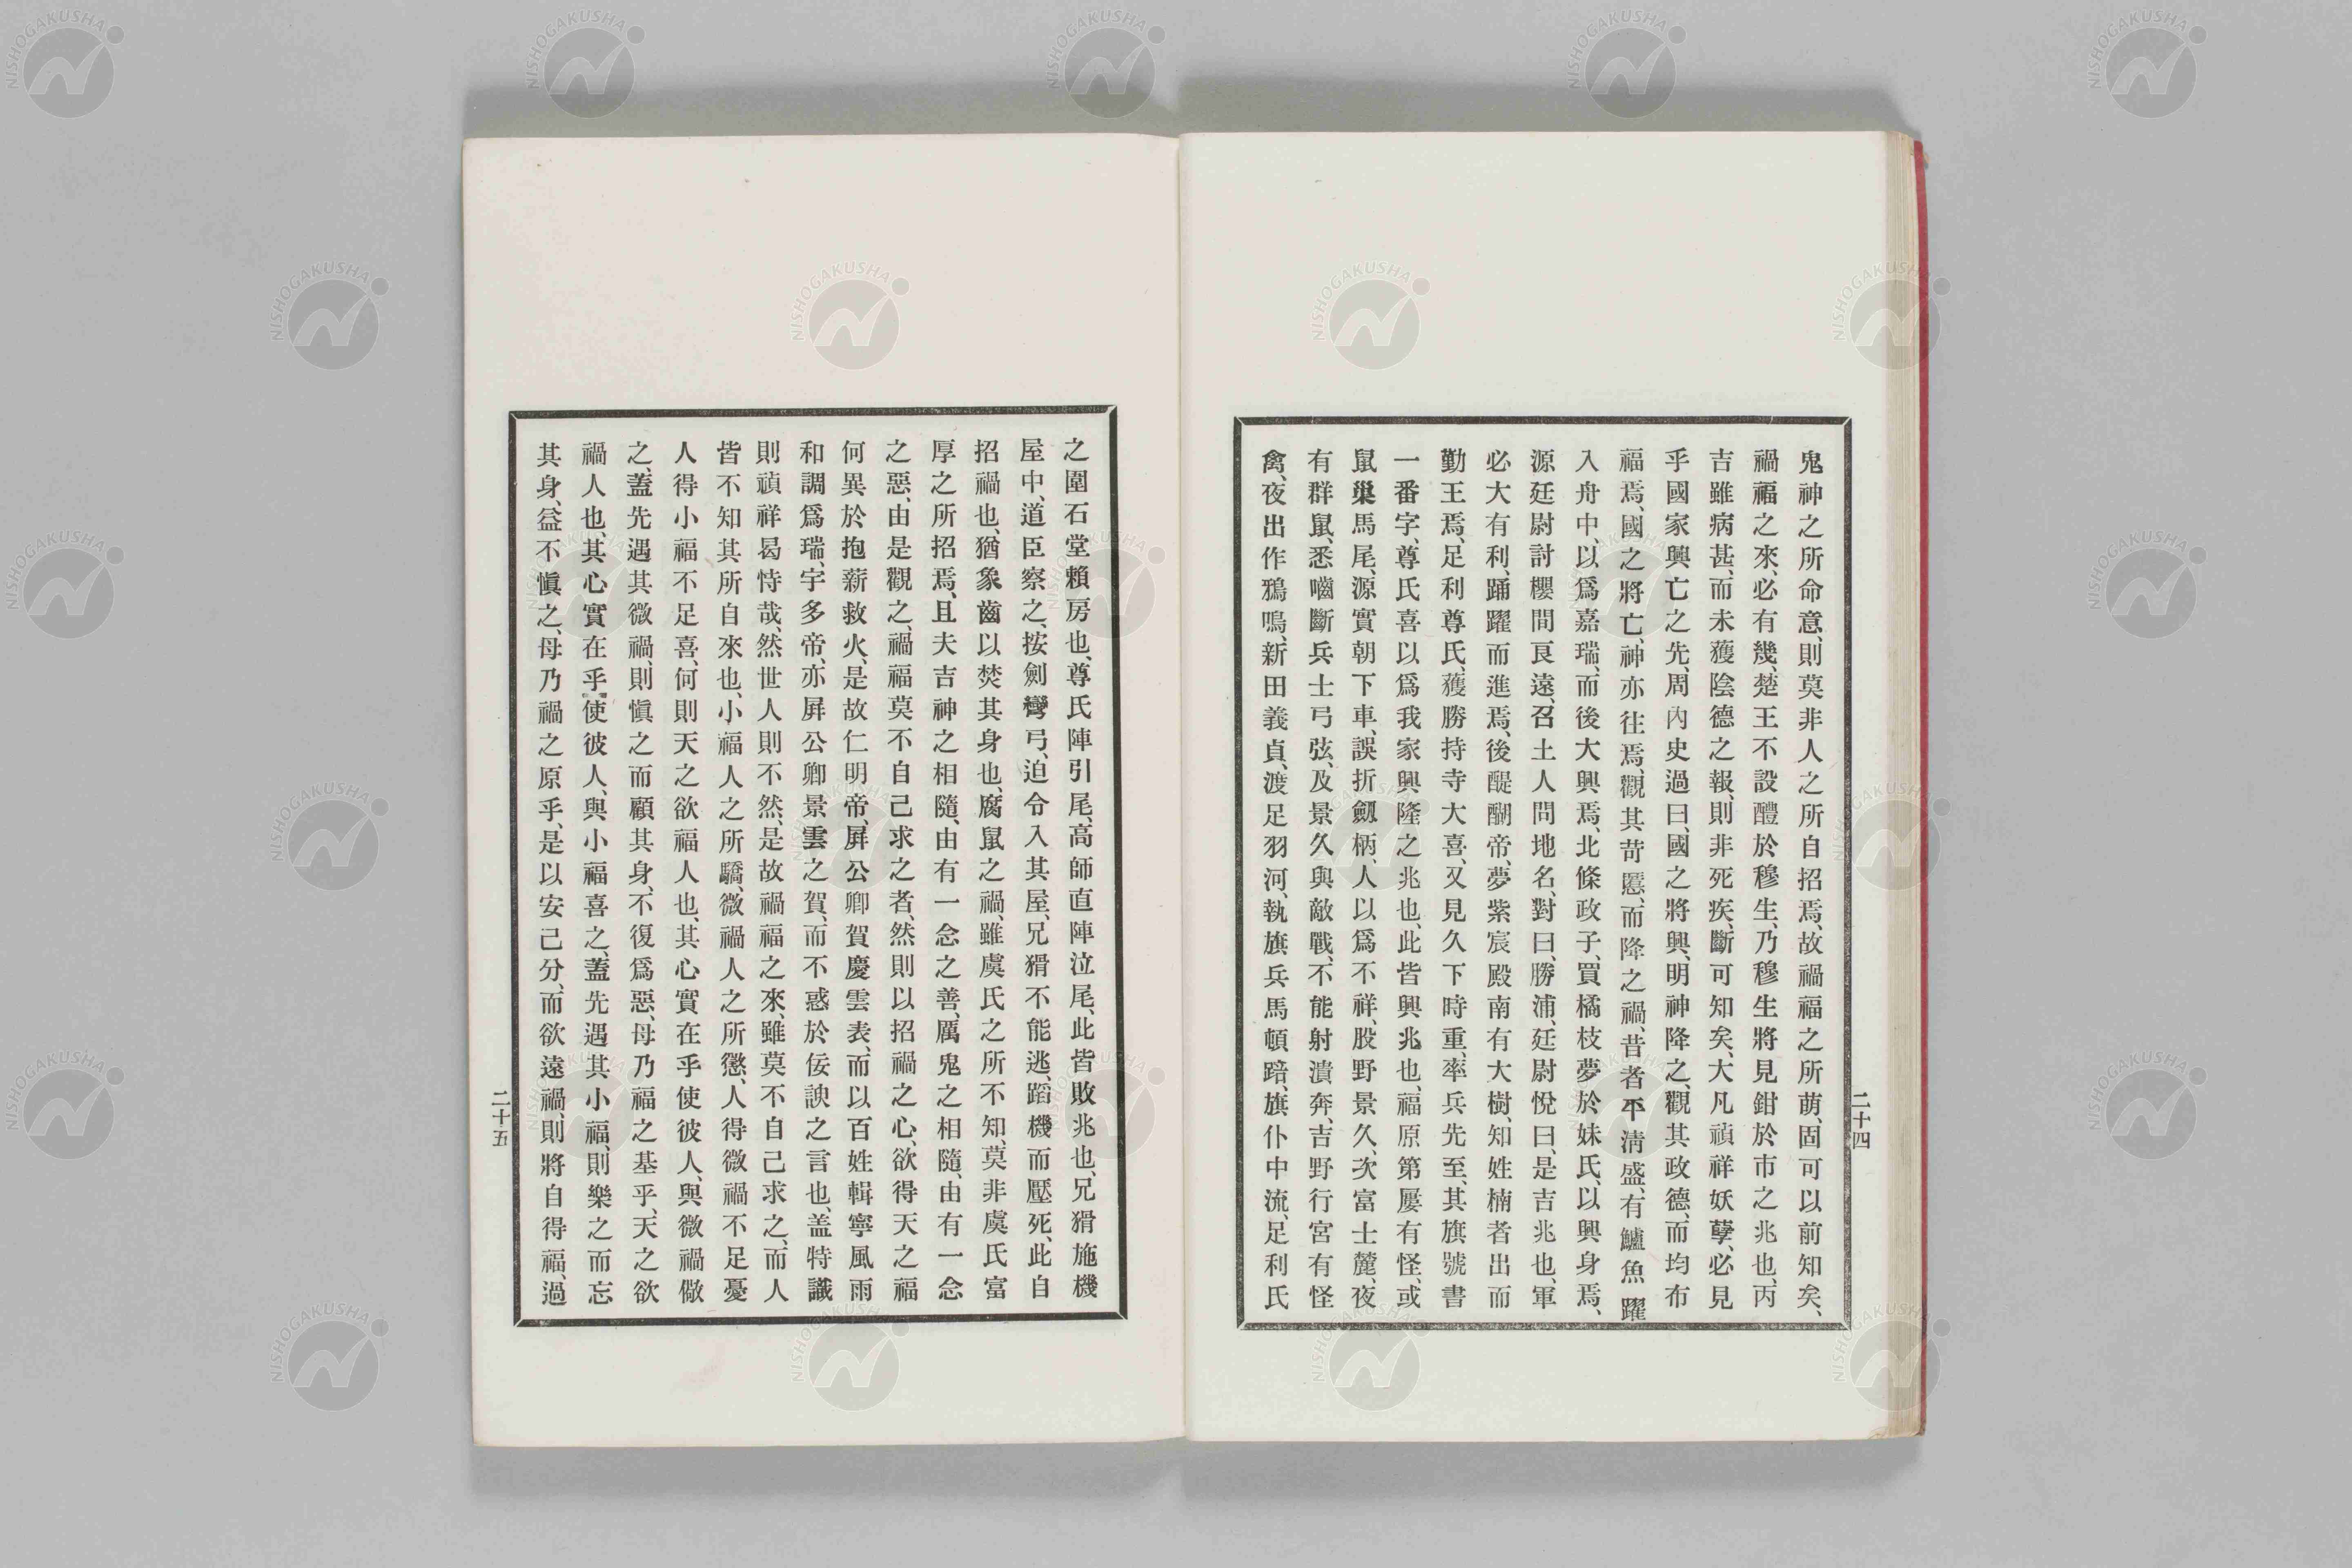 鬼神之所命意、則莫非人之所自招焉、故禍福之所萌、固可以前知矣、
禍福之來、必有幾、楚王不設醴於穆生、乃穆生將見鉗於市之兆也、丙
吉雖病甚、而未獲陰德之報、則非死疾、斷可知矣、大凡禎祥妖孽、必見
乎國家興亡之先、周內史過曰、國之將興、明神降之、觀其政德、而均布
福焉、國之將亡、神亦往焉、觀其苛慝、而降之禍、昔者平淸盛、有鱸魚躍
入舟中、以爲嘉瑞、而後大興焉、北條政子、買橘枝夢於妹氏、以興身焉、
源廷尉討櫻間良遠、召土人問地名、對曰、勝浦、廷尉悅曰、是吉兆也、軍
必大有利、踊躍而進焉、後醍醐帝、夢紫宸殿南有大樹、知姓楠者出而
勤王焉、足利尊氏、獲勝持寺大喜、又見久下時重、率兵先至、其旗號書
一番字、尊氏喜以爲我家興隆之兆也、此皆興兆也、福原第屢有怪、或
鼠巢馬尾、源實朝下車、誤折劔柄、人以爲不祥、股野景久、次富士麓、夜
有群鼠、悉嚙斷兵士弓弦、及景久與敵戰、不能射潰奔、吉野行宮有怪
禽、夜出作鴉鳴、新田義貞、渡足羽河、執旗兵馬頓踣、旗仆中流、足利氏
二十四
之圍石堂賴房也、尊氏陣引尾、高師直陣泣尾、此皆敗兆也、兄猾施機
屋中、道臣察之、按劍彎弓、迫令入其屋、兄猾不能逃、蹈機而壓死、此自
招禍也、猶象齒以焚其身也、腐鼠之禍、雖虞氏之所不知、莫非虞氏富
厚之所招焉、且夫吉神之相隨、由有一念之善、厲鬼之相隨、由有一念
之惡、由是觀之、禍福莫不自己求之者、然則以招禍之心、欲得天之福
何異於抱薪救火、是故仁明帝、屛公卿賀慶雲表、而以百姓輯寧風雨
和調爲瑞、宇多帝、亦屛公卿景雲之賀、而不惑於佞諛之言也、盖特識
則禎祥曷恃哉、然世人則不然、是故禍福之來、雖莫不自己求之、而人
皆不知其所自來也、小福人之所驕、微禍人之所懲、人得微禍不足憂
人得小福不足喜、何則天之欲福人也、其心實在乎使彼人、與微禍儆
之、蓋先遇其微禍、則愼之而顧其身、不復爲惡、毋乃福之基乎、天之欲
禍人也、其心實在乎、使彼人、與小福喜之、蓋先遇其小福、則樂之而忘
其身、益不愼之、毋乃禍之原乎、是以安己分、而欲遠禍、則將自得福、過
二十五